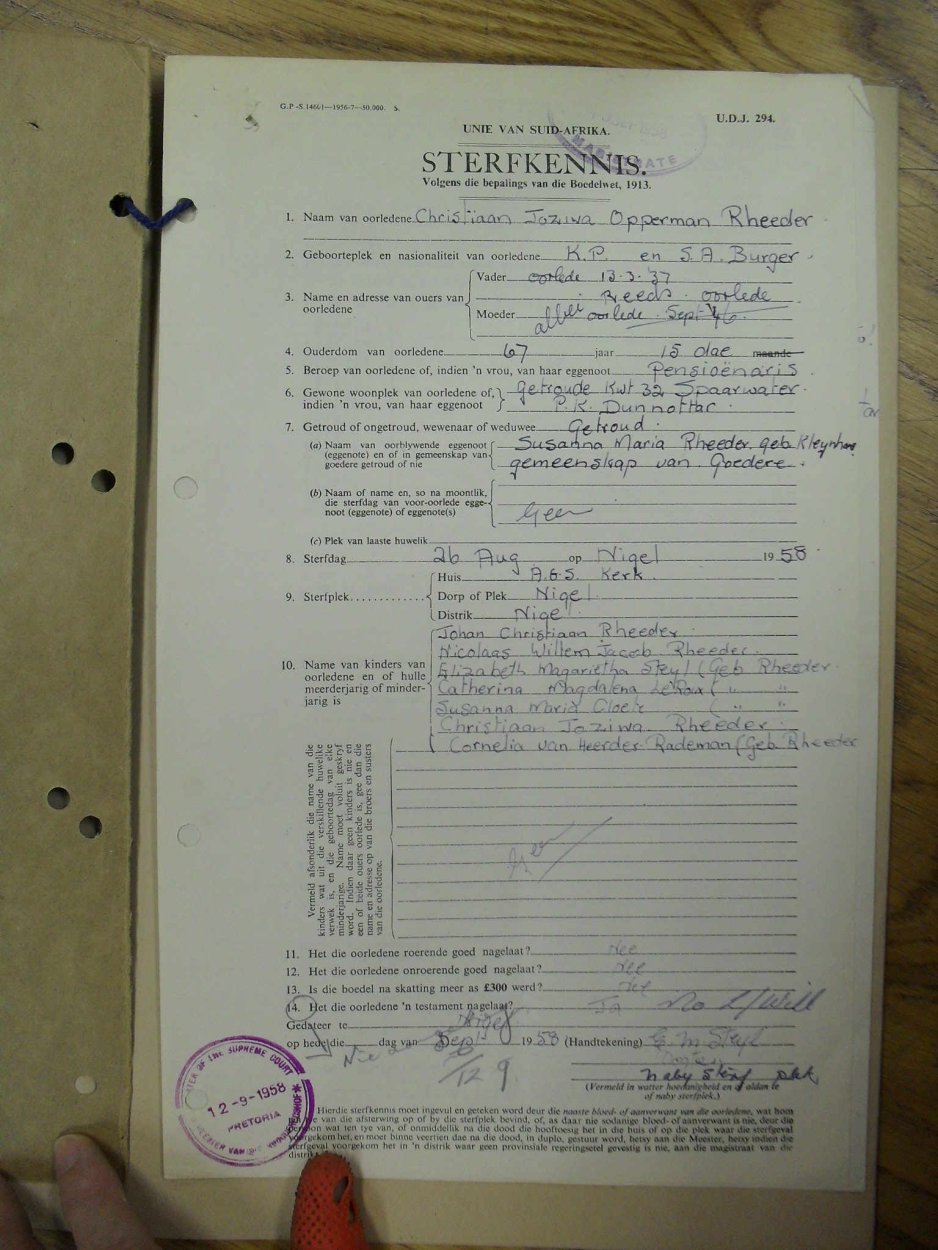 G.P.-S.14661—1956-7—50,000. S.
U.D.J. 294.
UNIE VAN SUID-AFRIKA.
MAGISTRATE
STERFKENNIS.
Volgens die bepalings van die Boedelwet, 1913.
1. Naam van oorledene Christiaan Joziwa Opperman Rheeder
2. Geboorteplek en nasionaliteit van oorledene K.P. en S.A. Burger
3. Name en adresse van ouers van oorledene
Vader oorlede 13-3-37
Reeds oorlede
Moeder albei oorlede Sept 46.
4. Ouderdom van oorledene 67 jaar 15 dae maande
5. Beroep van oorledene of, indien 'n vrou, van haar eggenoot Pensioënaris
6. Gewone woonplek van oorledene of, indien 'n vrou, van haar eggenoot
Getroude Kwt 32 Spaarwater
P.K. Dunnottar
7. Getroud of ongetroud, wewenaar of weduwee Getroud
(a) Naam van oorblywende eggenoot (eggenote) en of in gemeenskap van goedere getroud of nie
Susanna Maria Rheeder geb Kleynhans
gemeenskap van Goedere
(b) Naam of name en, so na moontlik, die sterfdag van voor-oorlede eggenoot (eggenote) of eggenote(s)
Geen
(c) Plek van laaste huwelik
8. Sterfdag 26 Aug op Nigel 1958
9. Sterfplek
Huis A.G.S. Kerk
Dorp of Plek Nigel
Distrik Nigel
10. Name van kinders van oorledene en of hulle meerderjarig of minderjarig is
Johan Christiaan Rheeder
Nicolaas Willem Jacob Rheeder
Elizabeth Magarietha Steyl (Geb Rheeder
Catherina Magdalena LeRoux ( " "
Susanna Maria Cloete ( " "
Christiaan Joziwa Rheeder
Cornelia van Heerder Rademan (Geb Rheeder
Vermeld afsonderlik die name van die kinders wat uit die verskillende huwelike verwek is, en die geboortedag van elke minderjarige. Name moet voluit geskryf word. Indien daar geen kinders is nie en een of beide ouers oorlede is, gee dan die name en adresse op van die broers en susters van die oorledene.
11. Het die oorledene roerende goed nagelaat? Nee
12. Het die oorledene onroerende goed nagelaat? Nee
13. Is die boedel na skatting meer as £300 werd? Nee
14. Het die oorledene 'n testament nagelaat? Ja No L/Will
Gedateer te Nigel
op hede die dag van Sept 1958 (Handtekening) E M Steyl
12 9
naby sterf plek
(Vermeld in watter hoedanigheid en of aldan te of naby sterfplek.)
MASTER OF THE SUPREME COURT
12-9-1958
PRETORIA
Hierdie sterfkennis moet ingevul en geteken word deur die naaste bloed- of aanverwant van die oorledene, wat hom ten tye van die afsterwing op of by die sterfplek bevind, of, as daar nie sodanige bloed- of aanverwant is nie, deur die persoon wat ten tye van, of onmiddellik na die dood die hooftoesig het in die huis of op die plek waar die sterfgeval voorgekom het, en moet binne veertien dae na die dood, in duplo, gestuur word, hetsy aan die Meester, hetsy indien die sterfgeval voorgekom het in 'n distrik waar geen provinsiale regeringsetel gevestig is nie, aan die magistraat van die distrik.